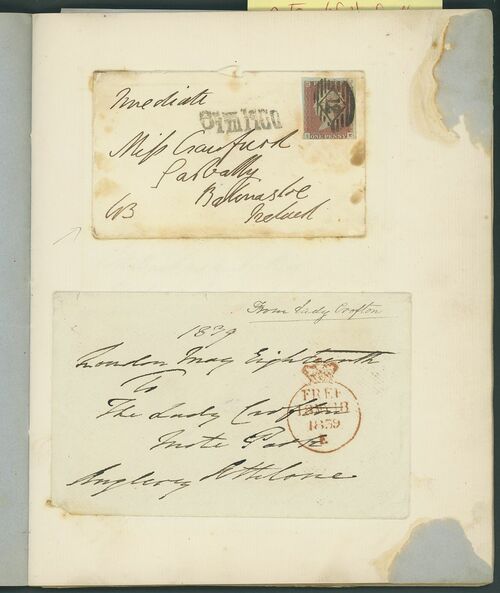 Immediate
Pimlico
Miss Crawfurd
Garbally
Ballinasloe
Ireland
ONE PENNY
From Lady Crofton
1839
London May Eighteenth
To
The Lady Crofton
Mote Park
Athlone
FREE
1839
E